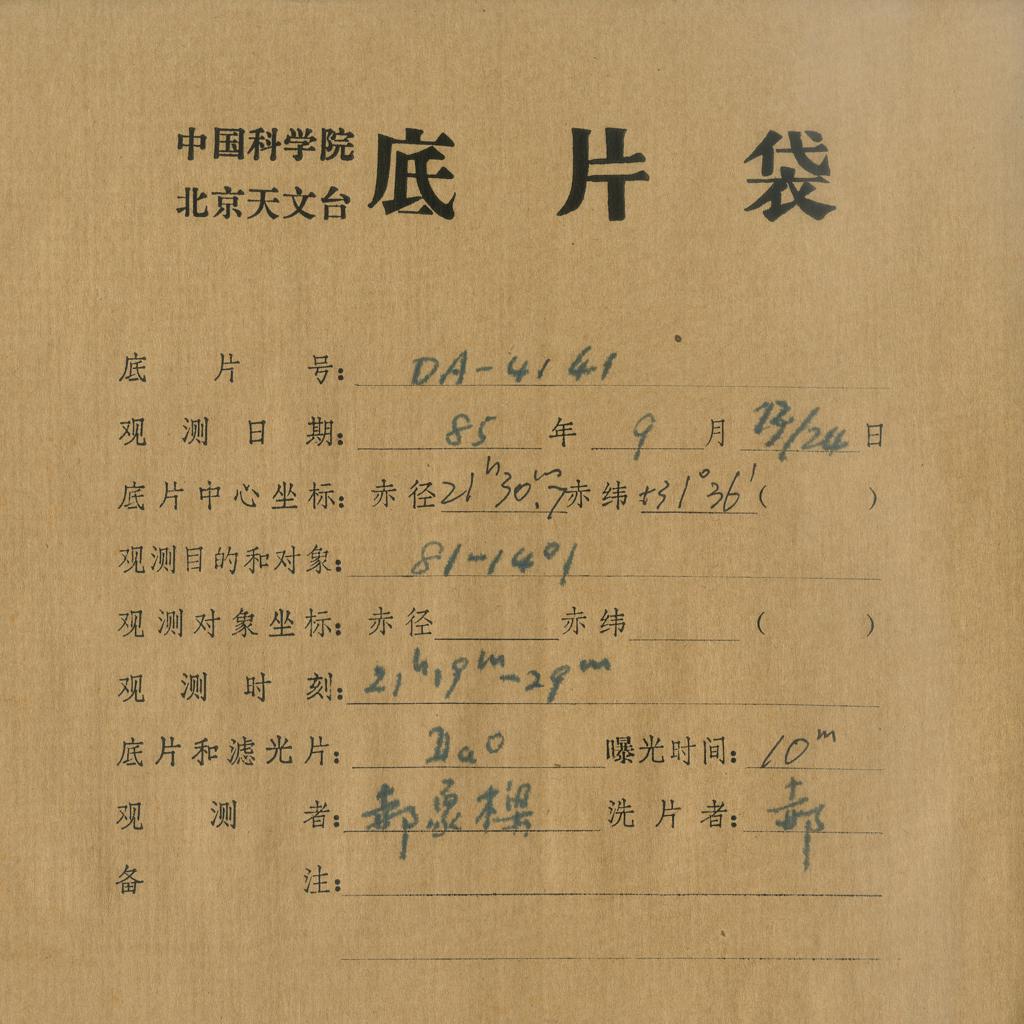 中国科学院
北京天文台
底片袋
底片号: DA-4141
观测日期: 85年 9月 13/24日
底片中心坐标: 赤径 21ʰ30ᵐ.7 赤纬 +31°36′ ( )
观测目的和对象: 81-1401
观测对象坐标: 赤径 赤纬 ( )
观测时刻: 21ʰ19ᵐ-29ᵐ
底片和滤光片: DaO 曝光时间: 10ᵐ
观测者: 郝象樑 洗片者: 郝
备注: